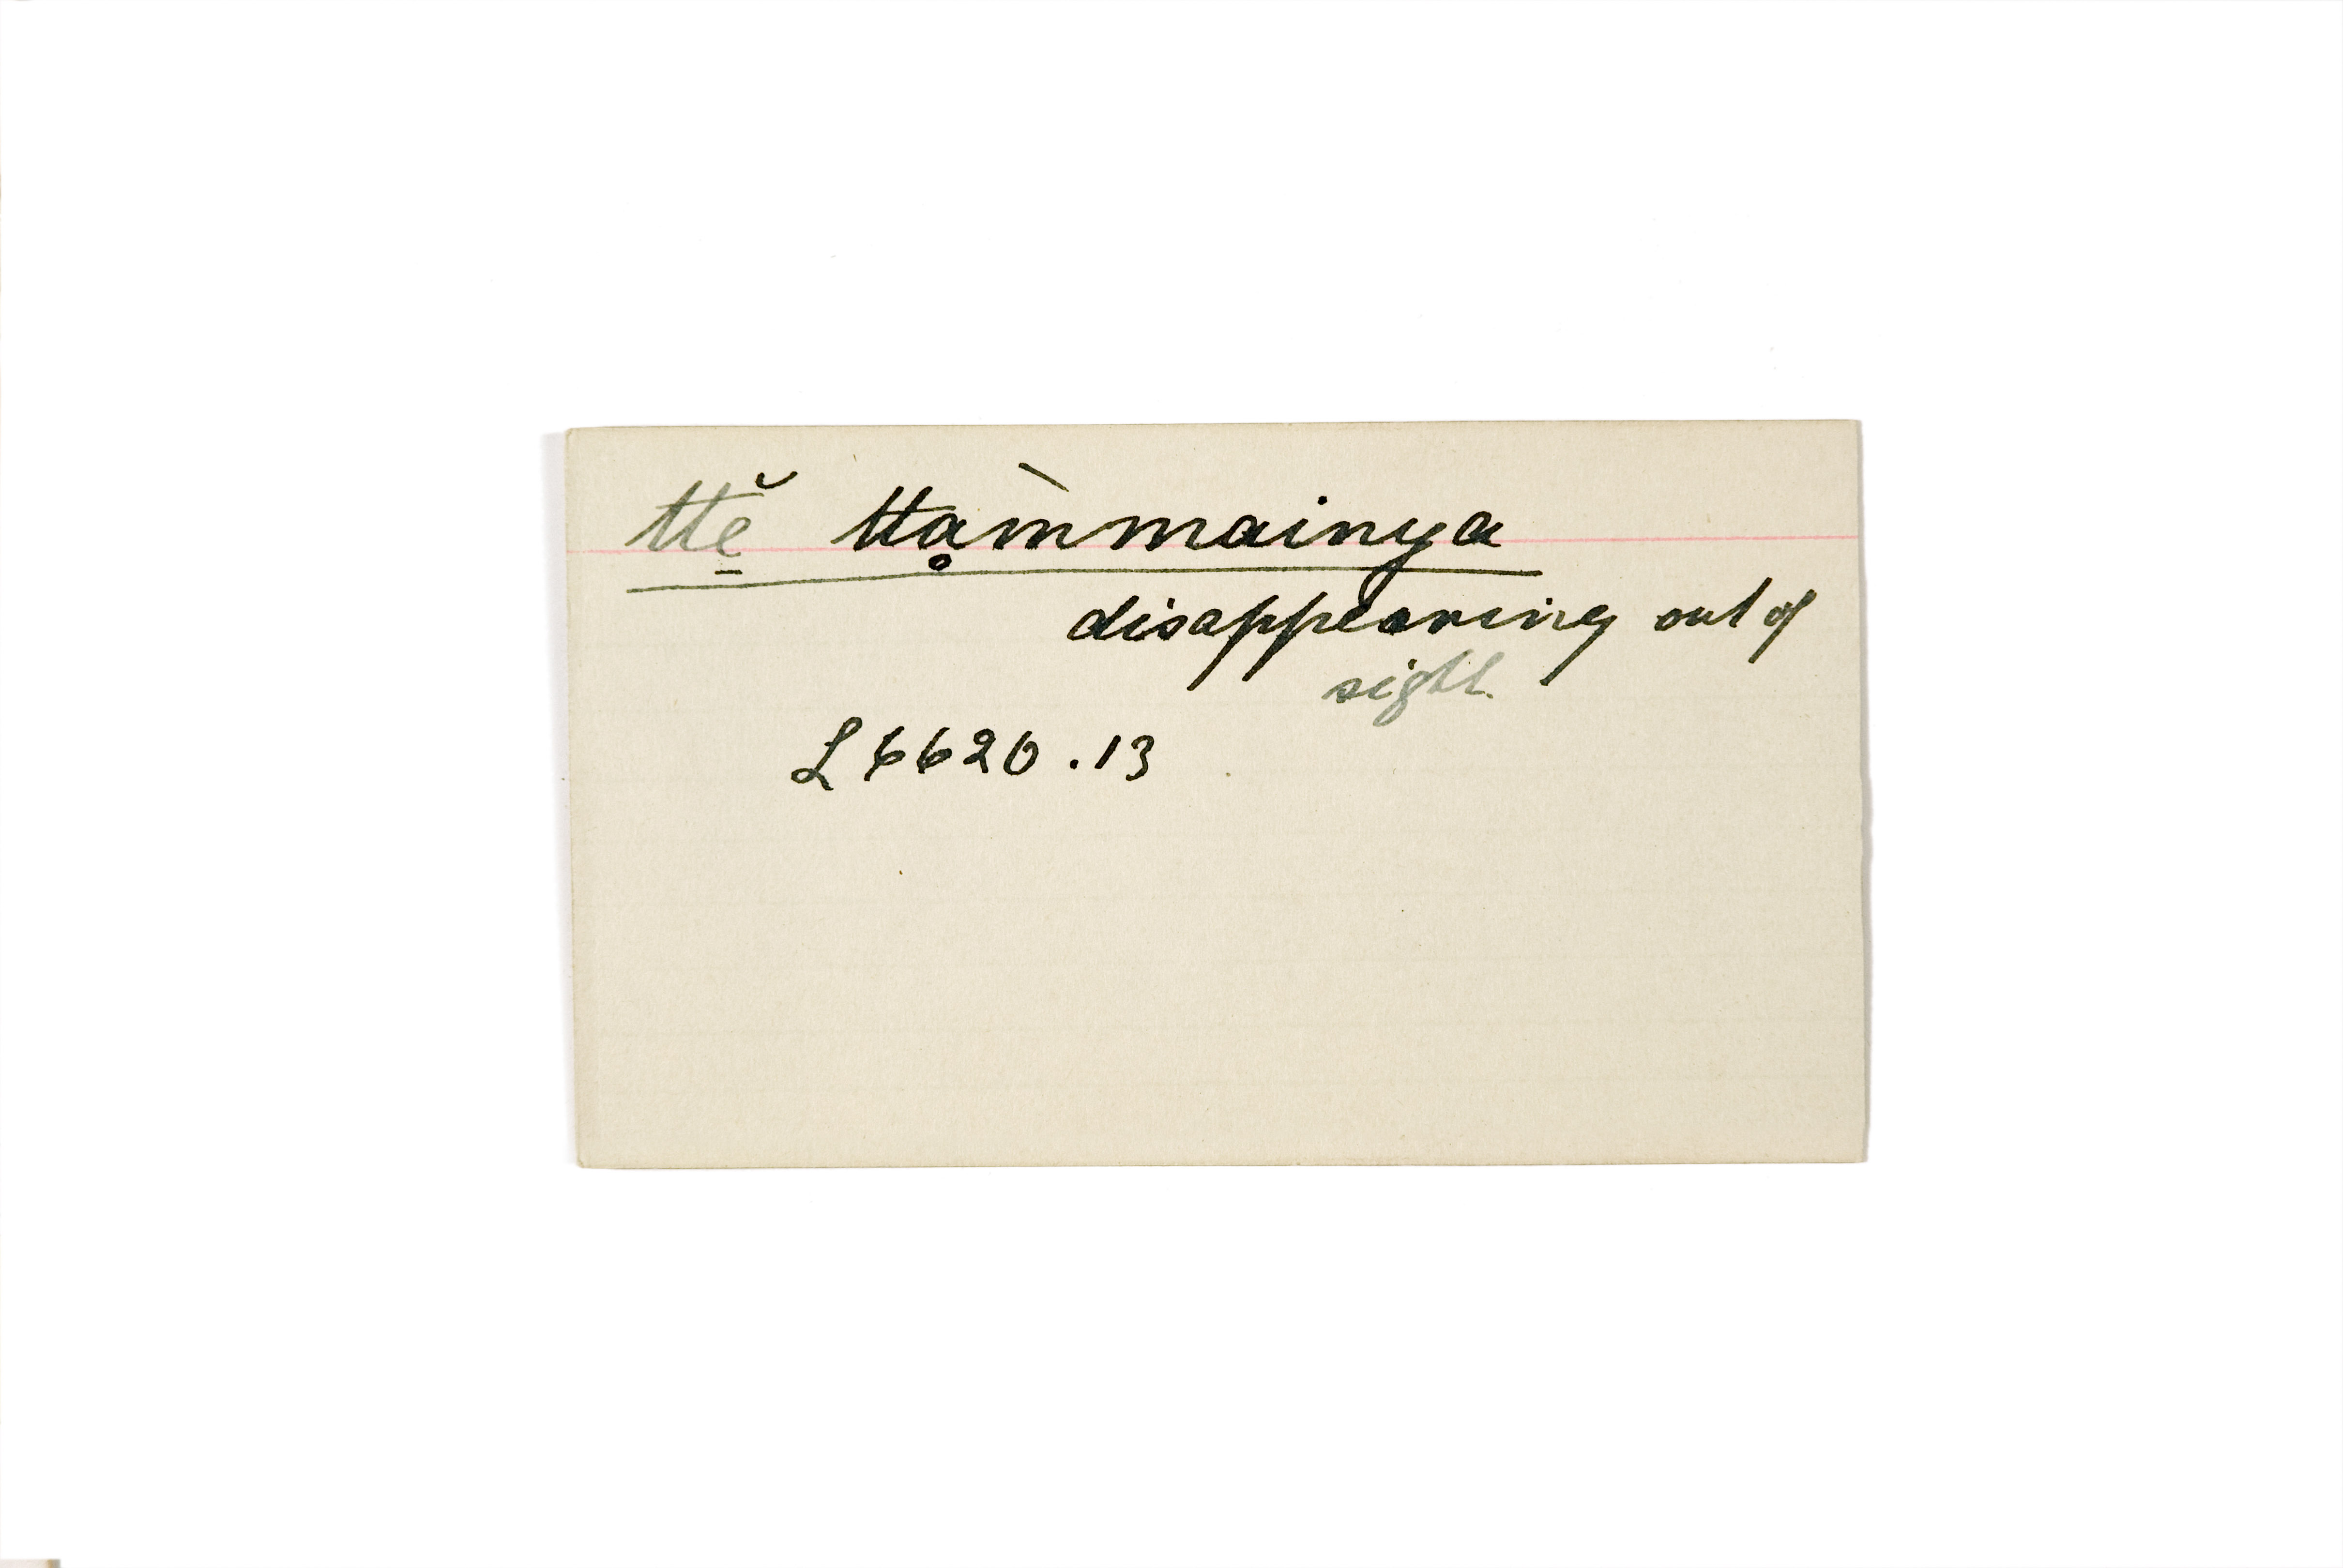 ttĕ̱ ttḁm̀mainya
disappearing out of
sight.
L 6620.13